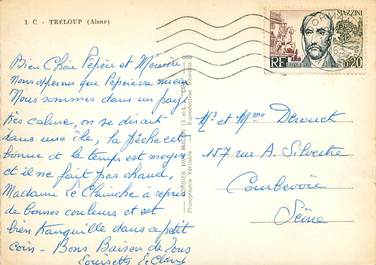 1 C - TRÉLOUP (Aisne)
Bien Chère Pépère et Mémère
Nous espérons que Pépère va mieux
Nous sommes dans un pays
très calme, on se dirait
dans une île, la pêche est
bonne et le temps est moyen
et il ne fait pas chaud,
Madame Le a repris
de bonnes couleurs et est
bien tranquille dans ce petit
coin - Bons Baisers de tous
Louisette
MAZZINI
RF
0,20
Mr et Mme Derouet
157 rue A. Silvestre
Courbevoie
Seine